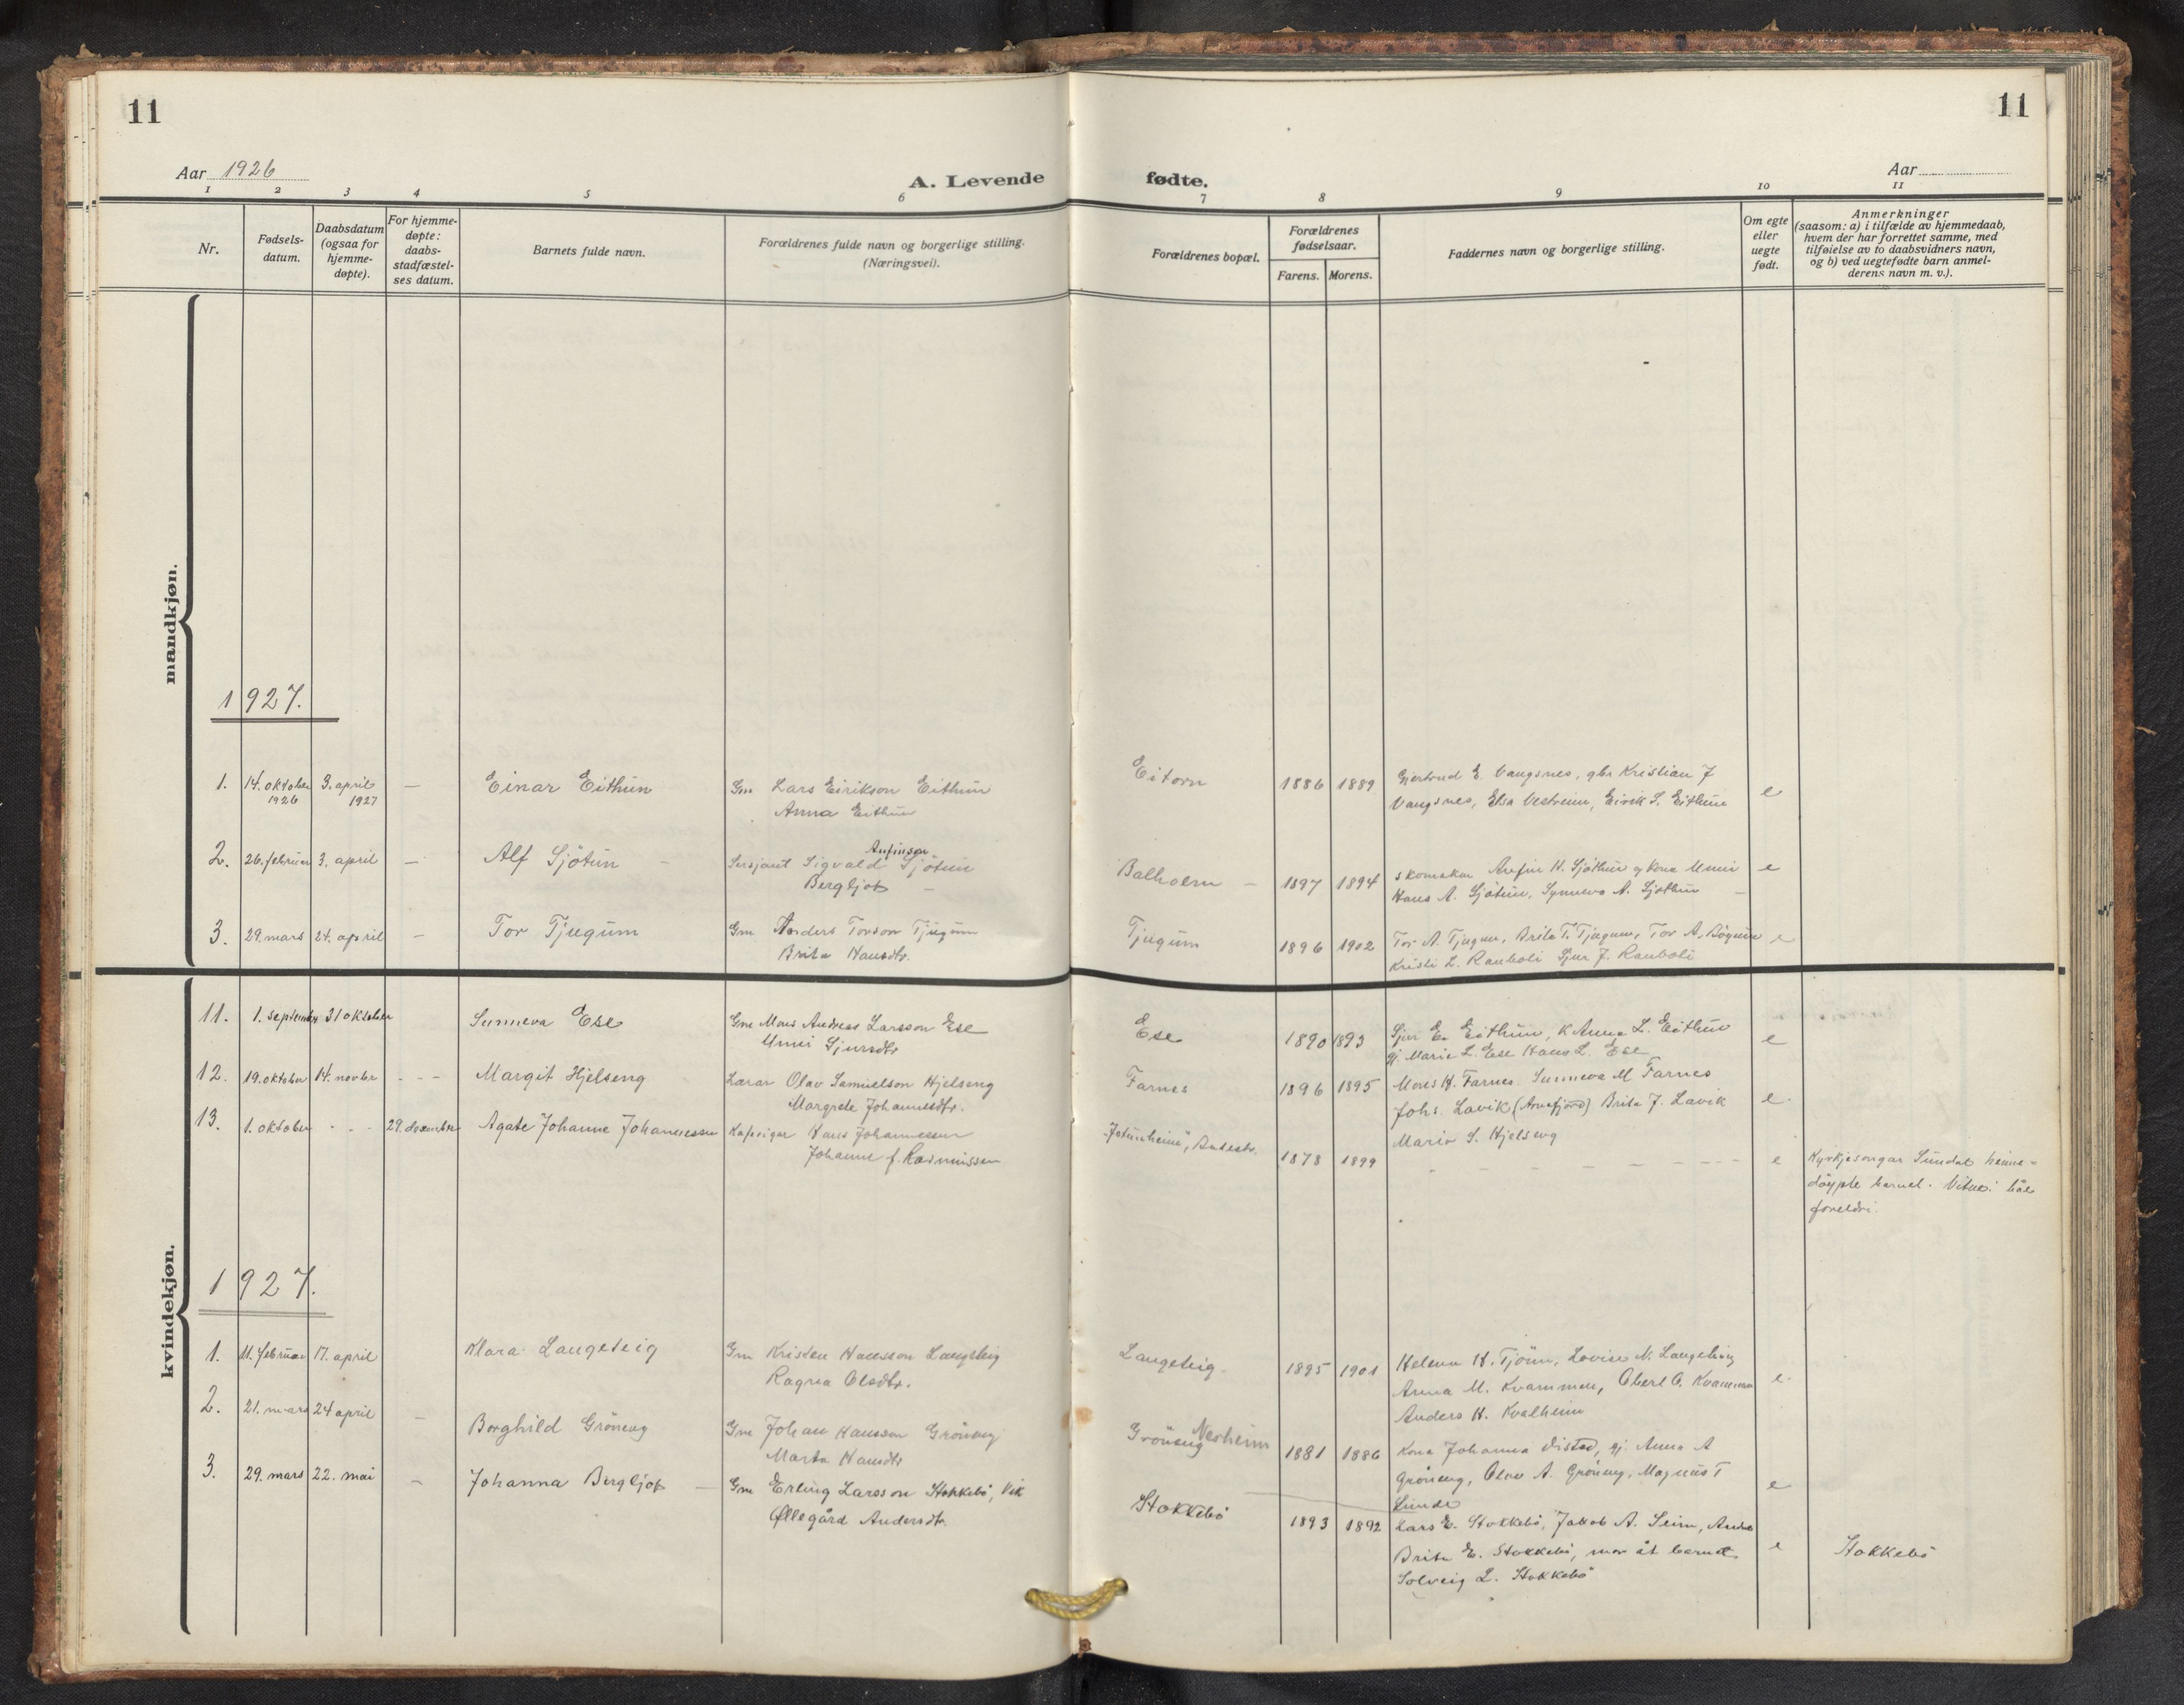 11
11
Aar 1926
A. Levende fødte.
Aar
1 2 3 4 5 6 7 8 9 10 11
Nr.
Fødsels-
datum.
Daabsdatum
(ogsaa for
hjemme-
døpte).
For hjemme-
døpte:
daabs-
stadfæstel-
ses datum.
Barnets fulde navn.
Forældrenes fulde navn og borgerlige stilling.
(Næringsvei).
Forældrenes bopæl.
Forældrenes
fødselsaar.
Farens. Morens.
Faddernes navn og borgerlige stilling.
Om egte
eller
uegte
født.
Anmerkninger
(saasom: a) i tilfælde av hjemmedaab,
hvem der har forrettet samme, med
tilføielse av to daabsvidners navn,
og b) ved uegtefødte barn anmel-
derens navn m. v.).
mandkjøn.
1927.
1. 14. oktober 3. april — Einar Eithun Gm Lars Eirikson Eithun Eitorn 1886 1889 Gjertrud E. Vangsnes, gbr Kristian J e
1926 1927 Anna Eithun Vangsnes, Elsa Vestreim, Eirik S. Eithun
Anfinson
2. 26. februar 3. april — Alf Sjötun — Sersjant Sigvald Sjötun Balholm — 1897 1894 skomakar Anfin H. Sjöthun og kona Unni e
Bergljot — Hans A. Sjötun, Synneva A. Sjöthun —
3. 29. mars 24. april — Tor Tjugum Gm Anders Torson Tjugum Tjugum 1896 1902 Tor A. Tjugum, Brita T. Tjugum, Tor A. Bögum e
Brita Hansdtr. Kristi L. Ranboli Sjur J. Ranboli
kvindekjøn.
11. 1. september 31 oktober Sunneva Ese Gm Mons Andreas Larsson Ese Ese 1890 1893 Sjur E. Eithun, K Anna L. Eithun e
Unni Sjursdtr gj. Marie L. Ese Hans L. Ese
12. 19. oktober 14. novbr - - - Margit Hjelseng Lærar Olav Samuelson Hjelseng Farnes 1896 1895 Mons H. Farnes. Sunneva M Farnes e.
Margrete Johannesdtr. Johs. Lavik (Arnafjord) Brita J. Lavik
Maria S. Hjelseng
13. 1. oktober - - - 29. desember Agate Johanne Johannessen Kapsigar Hans Johannessen "Jotunheim", Balestr. 1878 1899 - - - - - - - - e Kyrkjesongar Sundal heime-
Johanne f. Rasmussen döypte barnet. Vitne: båe
foreldri.
1927.
1. 11. februar 17. april Klara Langeteig Gm Kristen Hansson Langeteig Langeteig. 1895 1901 Helena H. Tjönn, Lovise N. Langeteig e.
Ragna Olsdtr. Anna M. Kvammen, Obert O. Kvamme
Anders H. Kvalheim
2. 21. mars 24 april — Borghild Gröneng Gm Johan Hansson Gröneng Gröneng Nesheim 1881 1886 Kona Johanna Distad, gj. Anna A e
Marta Hansdtr Gröneng, Olav A. Gröneng, Magnus T
Lunde
3. 29. mars 22. mai — Johanna Bergljot — Gm Erling Larsson Stokkebö, Vik Stokkebö 1893 1892 Lars E. Stokkebö, Jakob A. Seim, e Stokkebö
Øllegård Andersdtr. Brita E. Stokkebö, mor åt barnet
Solveig L. Stokkebö